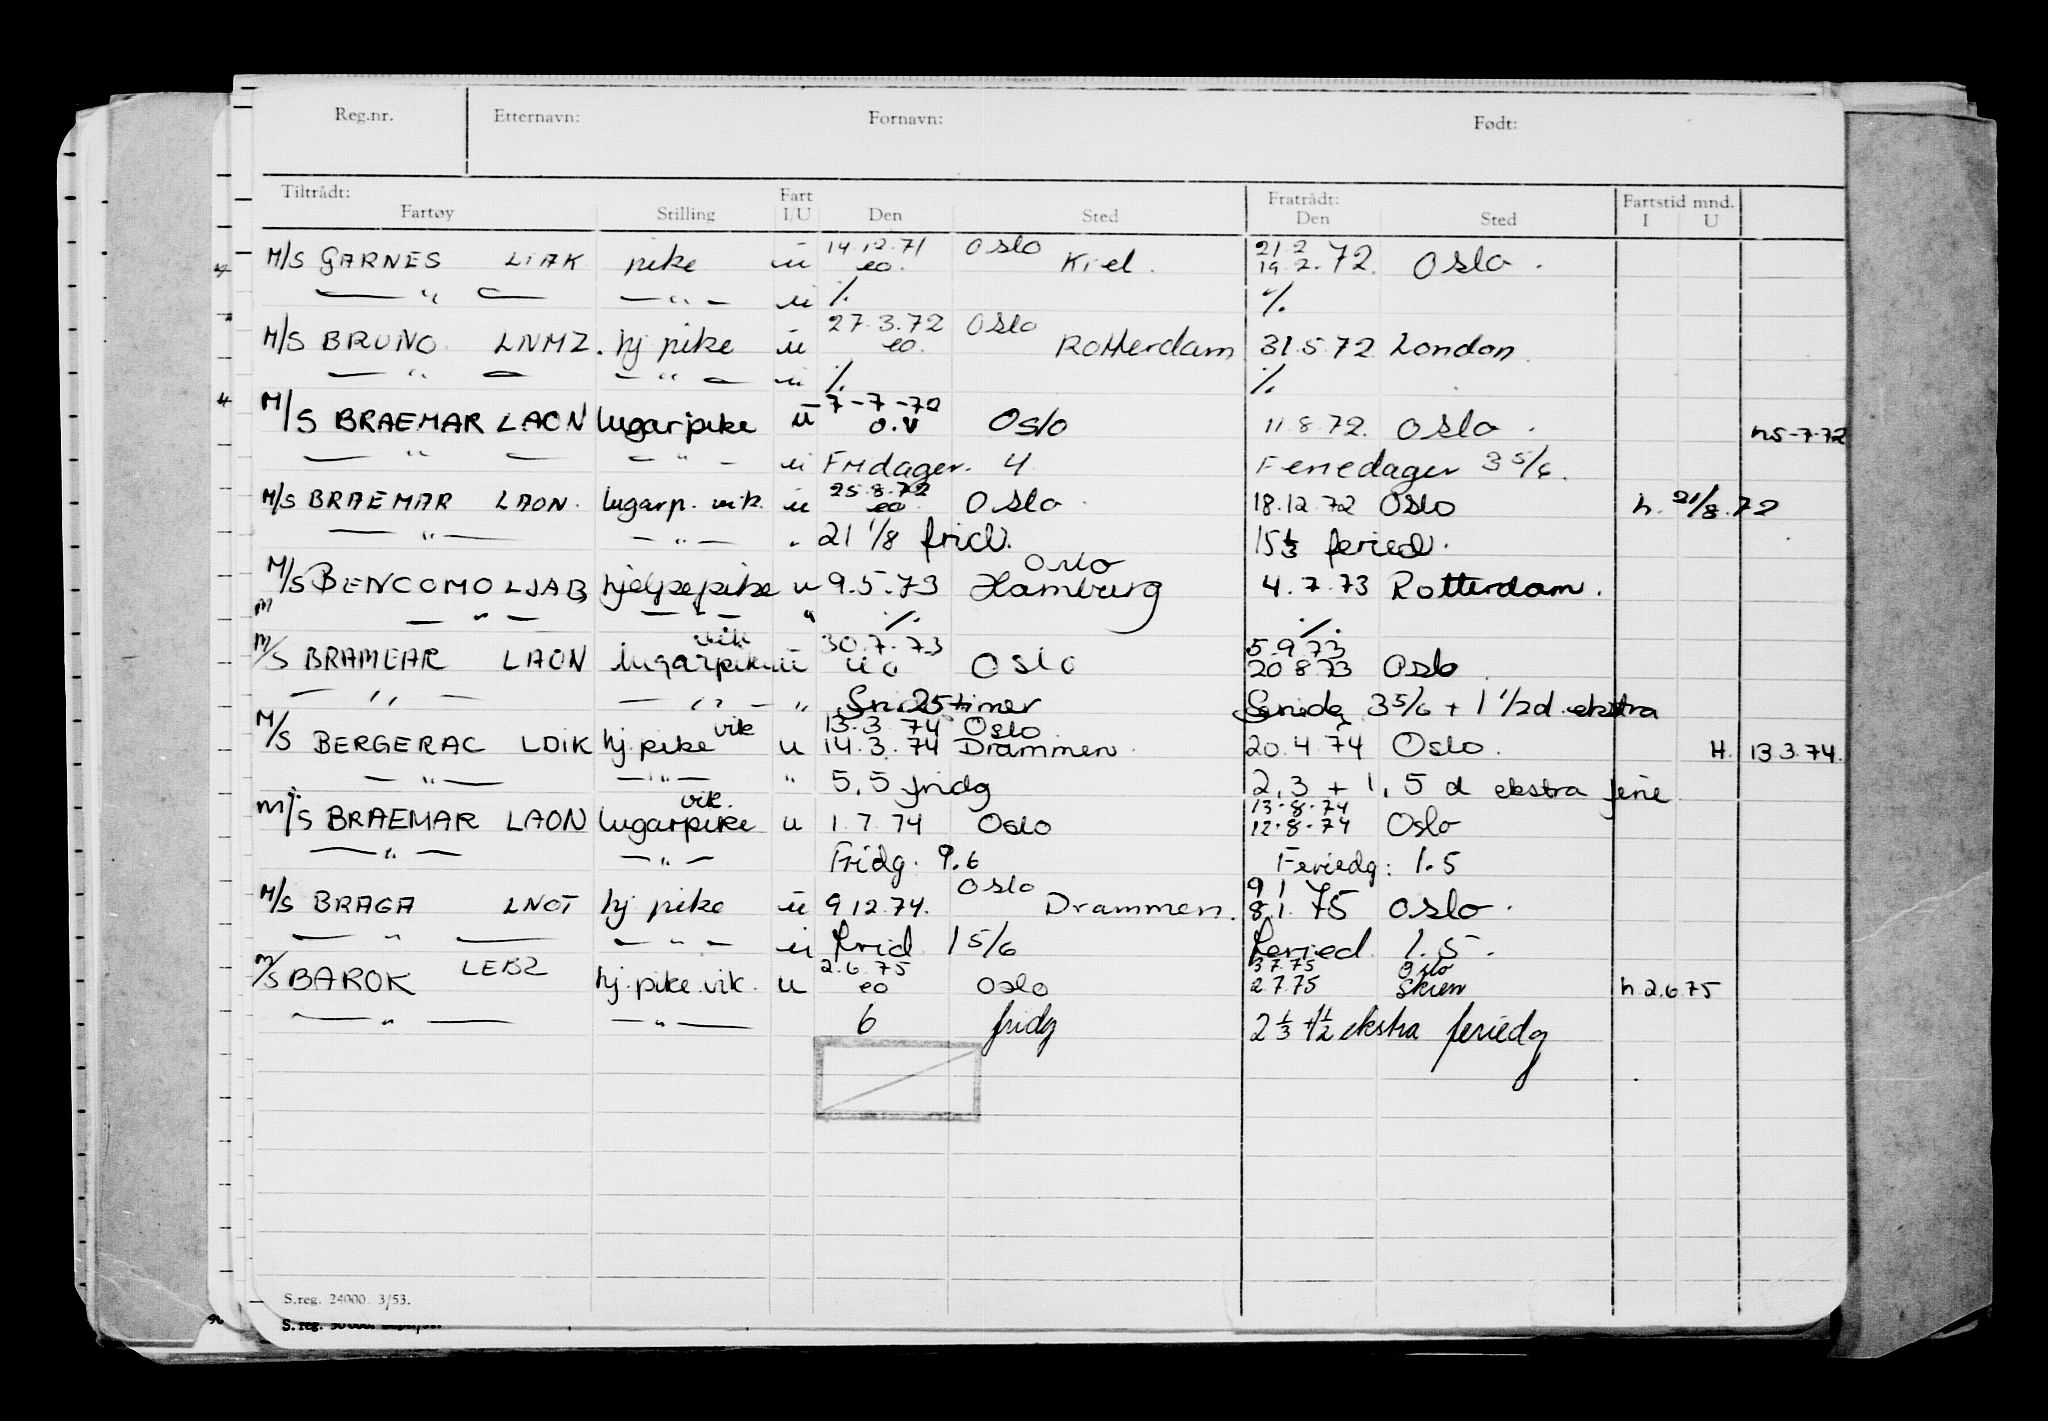 Reg.nr. Etternavn: Fornavn: Født:
Tiltrådt: Fart Fratrådt: Fartstid mnd.
Fartøy Stilling I/U Den Sted Den Sted I U
14.12.71 Oslo 21.2
M/S GARNES LIAK pike u eo. Kiel. 19.2.72. Oslo.
— " — — " — u ·/. ·/.
27.3.72 Oslo
M/S BRUNO LNMZ. hj pike u eo. Rotterdam 31.5.72 London.
— " — — " — u ·/. ·/.
7-7-72
M/S BRAEMAR LAON lugarpike u o.v Oslo 11.8.72. Oslo. h 5-7-72
— " — — " — u Fridager. 4 Feriedager 3 5/6.
25.8.72
M/S BRAEMAR LAON. lugarp. vik. u eo. Oslo. 18.12.72 Oslo h. 21/8.72
— " — — " — " 21 1/8 frid. 15 1/3 feried.
Oslo
M/S BENCOMO LJAB hjelpepike u 9.5.73 Hamburg 4.7.73 Rotterdam.
— " — — " — " ·/. ·/.
vik 30.7.73 5.9.73
M/S BRAMEAR LAON lugarpike u Oslo 20.8.73 Oslo.
— " — — " — " 25 timer 3 5/6 + 1 1/2 d. ekstra
vik 13.3.74 Oslo
M/S BERGERAC LDIK hj. pike u 14.3.74 Drammen. 20.4.74 Oslo. H. 13.3.74.
— " — — " — " 5,5 fridg 2,3 + 1,5 d ekstra ferie
vik. 13.8.74
M/S BRAEMAR LAON lugarpike u 1.7.74 Oslo 12.8.74 Oslo
— " — — " — Fridg: 9.6 Feriedg: 1.5
Oslo 9 1
M/S BRAGA LNOT hj pike u 9.12.74. Drammen. 8.1.75 Oslo.
— " — — " — u frid 1 5/6 feried. 1.5.
LEBZ 2.6.75 3.7.75 Oslo
M/S BAROK hj. pike vik. u eo Oslo 2.7.75 Skien h 2.6.75
— " — — " — 6 fridg 2 1/3 + 1/2 ekstra feriedg
S.reg. 24000. 3/53.
S. reg.